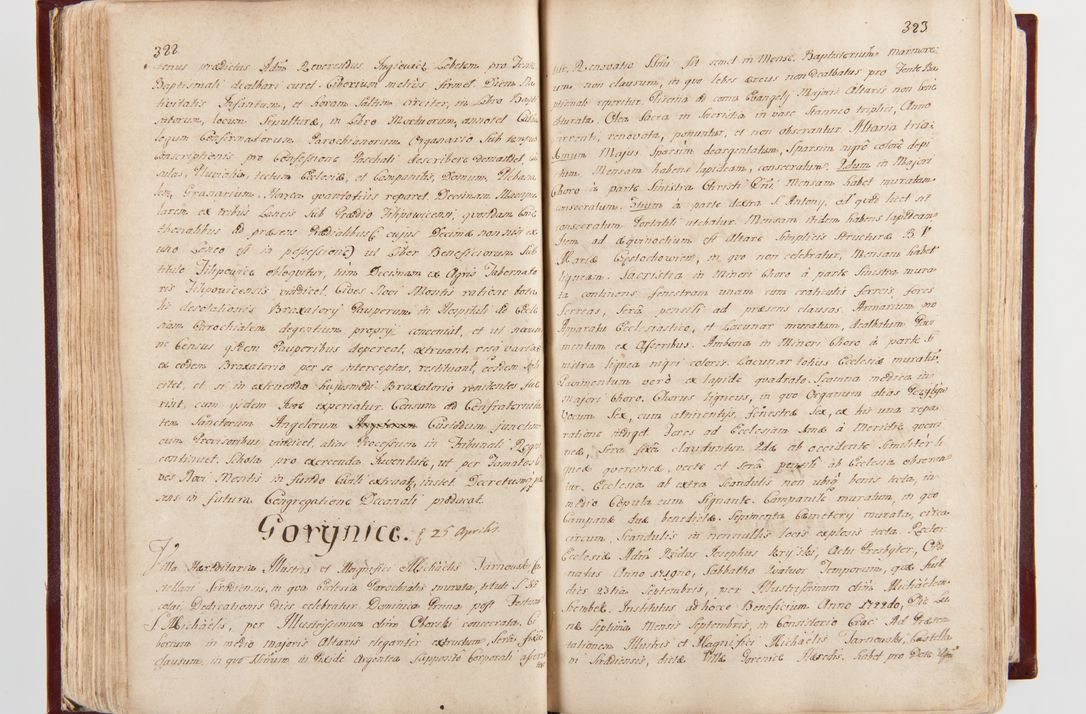 322
prædictus Adm Reverendus Lebetem pro Fonte
Baptismali dealbari curet. Ciborium melius firmet. Diem Na
tivitatis Infantum, et horam saltem circiter, in Libro Bapti
satorum, locum Sepulturæ, in Libro Mortuorum, annotet
legum Confirmatorum Parochianorum Organario sub tempus
Conscriptionis pro Confessione Paschali describere demandet,
tectum Ecclesiæ, et Campanilis, Domum, Pleba
lem, Granarium, Horrea quantotius reparet Decimam Manipu
larem ex tribus Laneis sub Prædio Filipovicensi, quondam
thonalibus ad præsens Prædialibus (: cujus Decimæ non nisi ex
uno Laneo est in possessione) ut Liber Beneficiorum sub
titulo Filipovice obloquitur, tum Decimam ex Agris Tabernato
ris Filipovicensis vindicet. Cives Novi Montis ratione tota
lis desolationis Braxatorij Pauperum in Hospitali ad Eccle
siam Parochialem degentium proprij conveniat, et ut
ne Census ijsdem Pauperibus depereat, extruant, resq varias
ex eodem Braxatorio per se interceptas, restituant, eosdem
citet, et si in extruendo hujusmodi Braxatorio renitentes fue
rint, cum ijsdem Jure experiatur. Censum ad Confraternita
tem Sanctorum Angelorum Custodum
cum Provisoribus vindicet, alias Processum in Tribunali Regni
continuet. Schola pro exercenda Juventute, ut per Famatos
ves Novi Montis in fundo Civili extruat, instet. Decretumq
sens in futura Congregatione Decanali producat.
Gorynice. 25 Aprilis.
Villa Hæreditaria Illustris et Magnifici Michaelis Tarnowski Ca
stellani Siradiensis, in qua Ecclesia Parochialis murata, tituli S. Ni
colai, Dedicationis dies celebratur Dominica Prima post Festum
S. Michaelis, per Illustrissimum olim Oborski consecrata. Ci
borium in medio majoris Altaris eleganter extructum, Sera
clausum, in quo Sacrum in Pixide Argentea supposito Corporali
323
tur. Renovatio sit semel in Mense. Baptisterium marmore
um non clausum, in quo lebes æreus non dealbatus pro Fonte Ba
ptismali reperitur. ad cornu Evangelij Majoris Altaris non bene
obturata. Olea Sacra in Sacristia in vase stanneo triplici, Anno
currenti, renovata, ponuntur, et non obserantur. Altaria tria:
Primum Majus, sparsim deargentatum, sparsim nigro colore depi
ctum. Mensam habens lapideam, consecratum. 2dum in Majori
Choro à parte sinistra Christi Dni Mensam habet muratam
consecratum. 3tium à parte dextra S. Antonij, ad quod licet sit
consecratum Portatili utebatur. Mensam itidem habens lapideam
Item ad Æquinoctium est Altare simplicis structuræ B. V.
Mariæ Czestochoviem, in quo non celebratur, Mensam habet
ligneam. Sacristia in Minori Choro à parte sinistra mura
ta continens fenestram unam cum craticulis ferreis, fores
ferreas, sera pensili ad præsens clausas. Armarium pro
Apparatu Ecclesiastico, et Lacunar muratum, dealbatum Pavi
mentum ex Asseribus. Ambona in Minori Choro à parte si
nistra lignea nigri coloris. Lacunar totius Ecclesiæ muratum,
Pavimentum verò ex lapide quadrato. Scamna mediocria in
Majori Choro. Chorus ligneus, in quo Organum alias Pozytyw
Vocum Sex, cum attinentijs, fenestræ Sex, ex his una repa
ratione indiget. Fores ad Ecclesiam binæ à Meridie querc
neæ, Sera fixa clauduntur. 2dæ ab occidente similiter li
gneæ querceneæ, vecte et sera pensili ab Ecclesia observan
tur. Ecclesia ab extra scandulis non ubiq benè tecta, in
medio Copula cum Signante. Campanile muratum, in quo
Campanæ duæ benedictæ. Sepimenta Cæmeterij murata, circa
circum, Scandulis in nonnullis locis explosis tecta. Rector
Ecclesiæ Adm Rndus Josephus Actu Presbyter, Ordi
natus Anno 1719no, Sabbatho Quatuor Temporum, quæ fuit
dies 23tia Septembris, per Illustrissimum olim Michaelem
Szembek. Institutus ad hocce Beneficium Anno 1722do, Die Lu
næ Septima Mensis Septembris, in Consistorio Crac: Ad Præsen
tationem Illustris et Magnifici Michaelis Tarnowski, Castella
ni Siradiensis, dictæ Villæ Gorenice Hæredis. Habet pro Dote